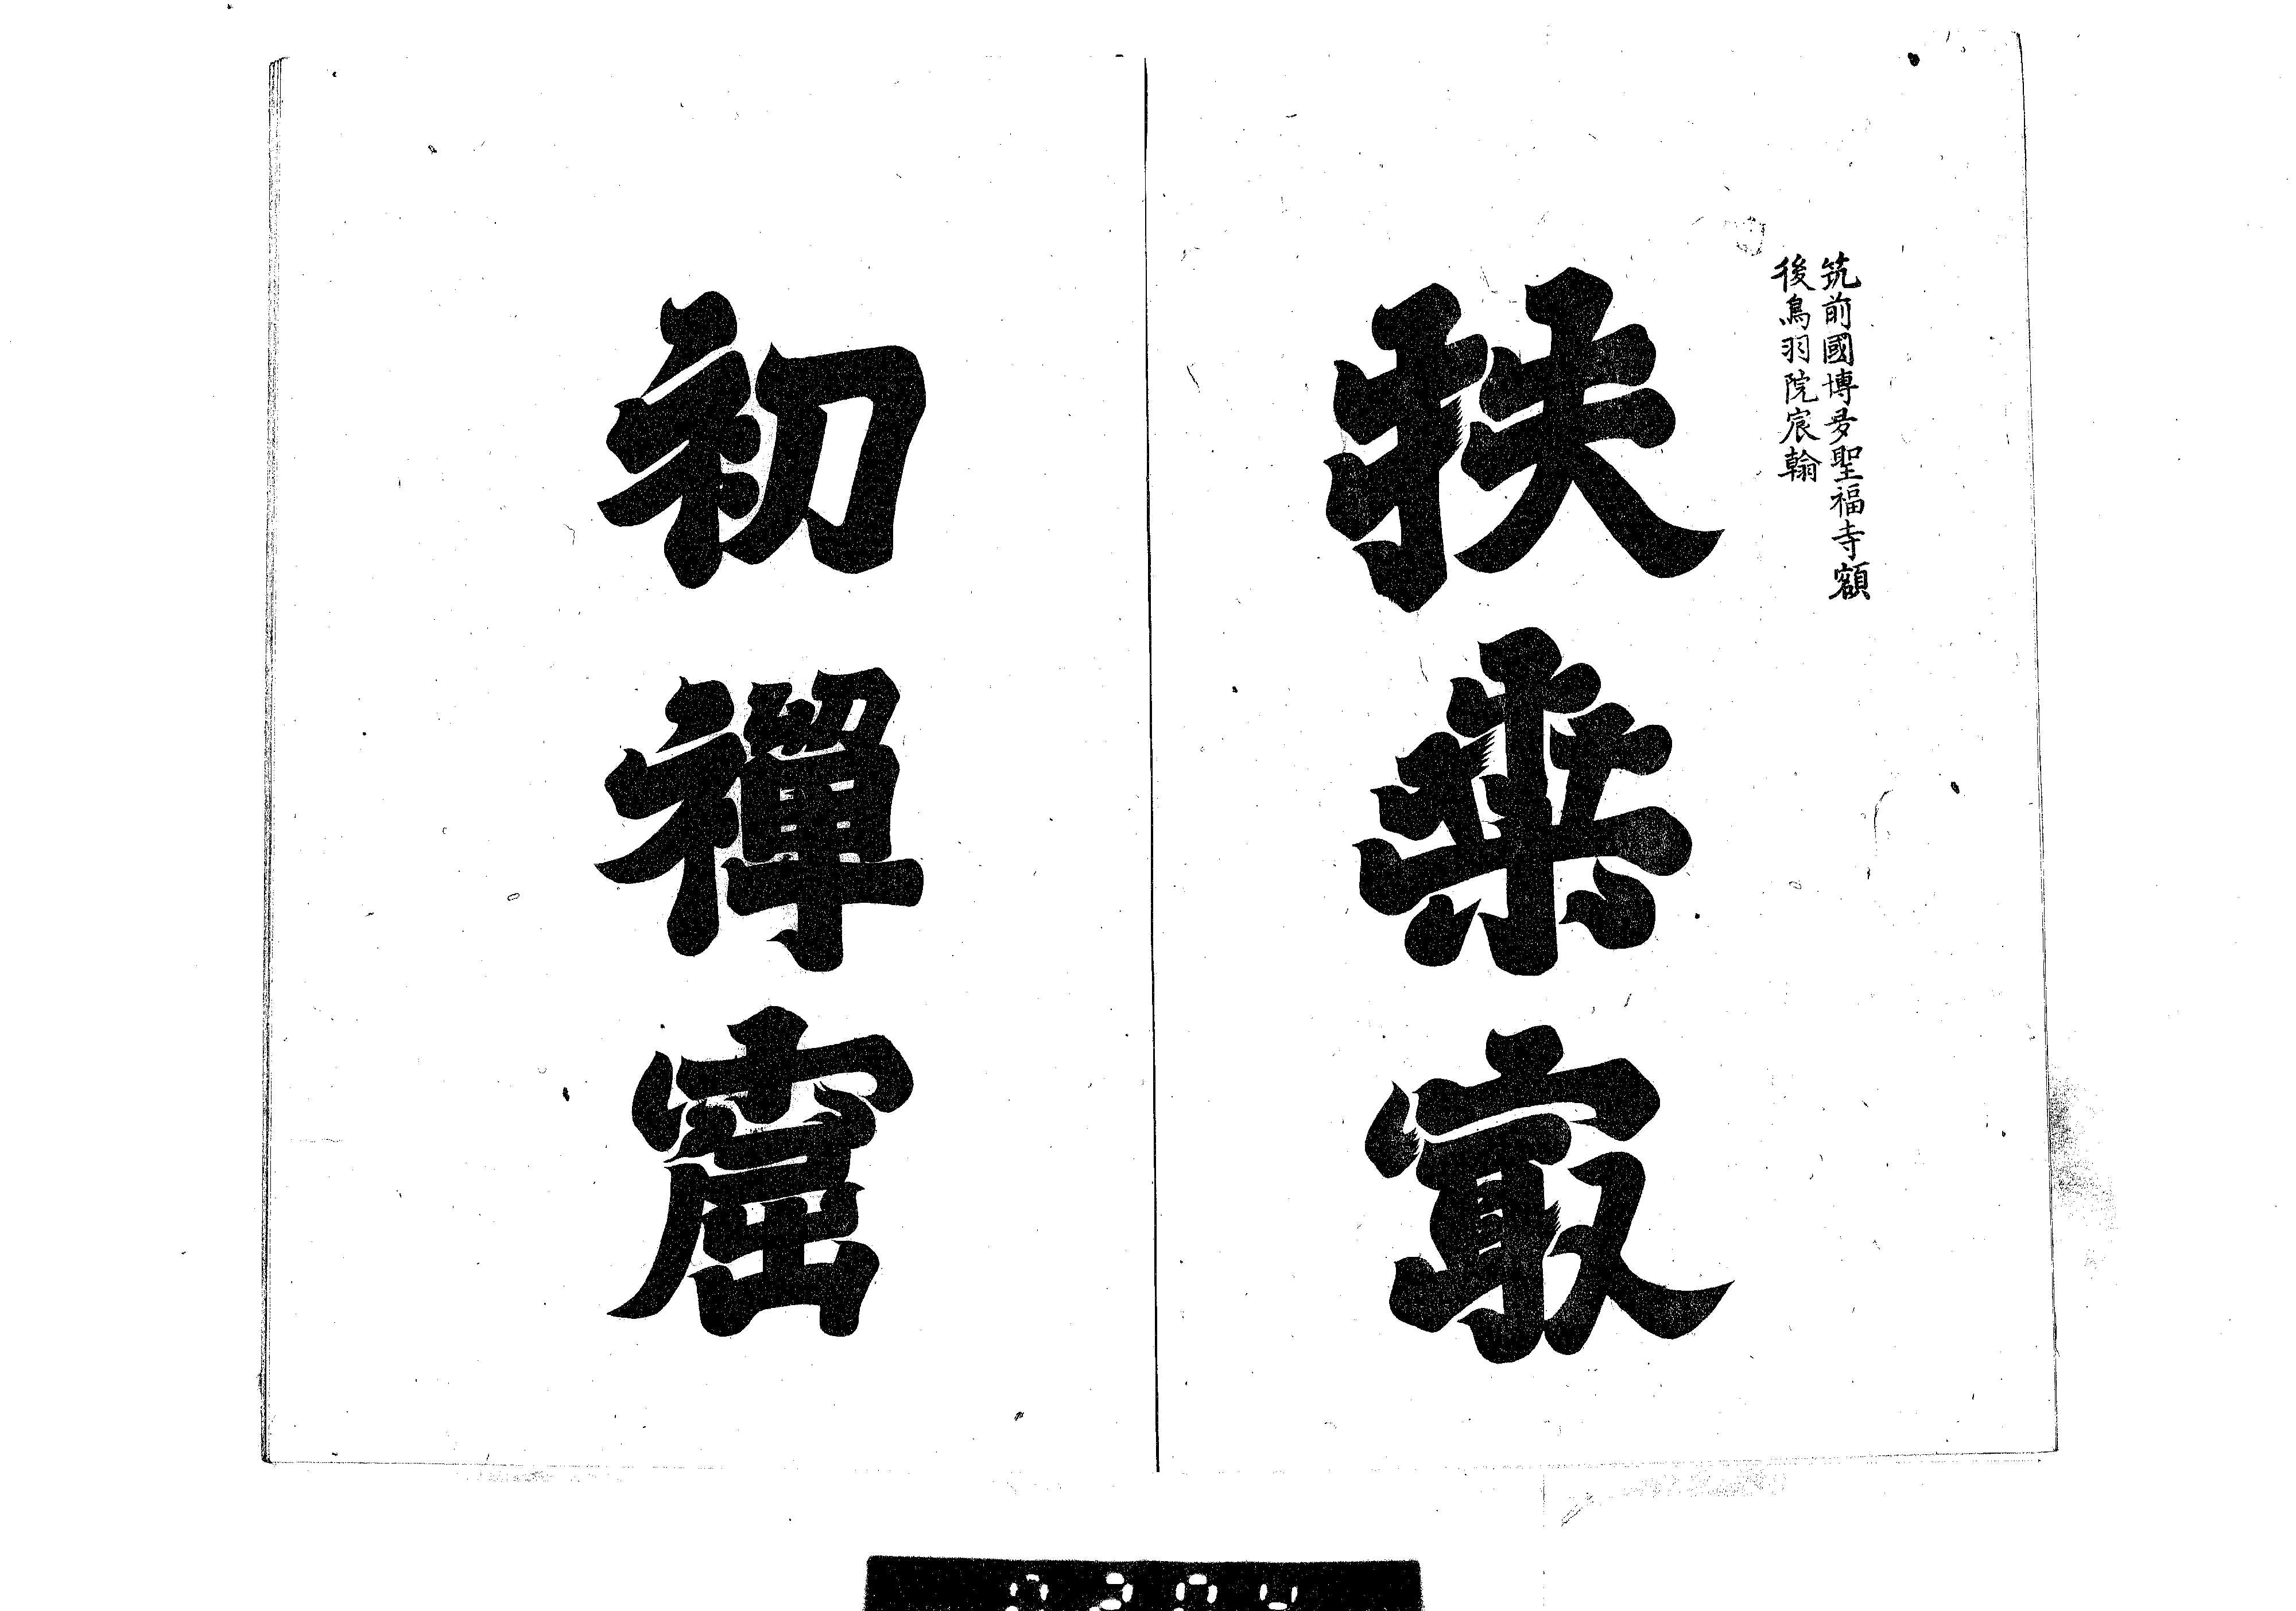 筑前國博多聖福寺額
後鳥羽院宸翰
扶桒㝡
初禪窟